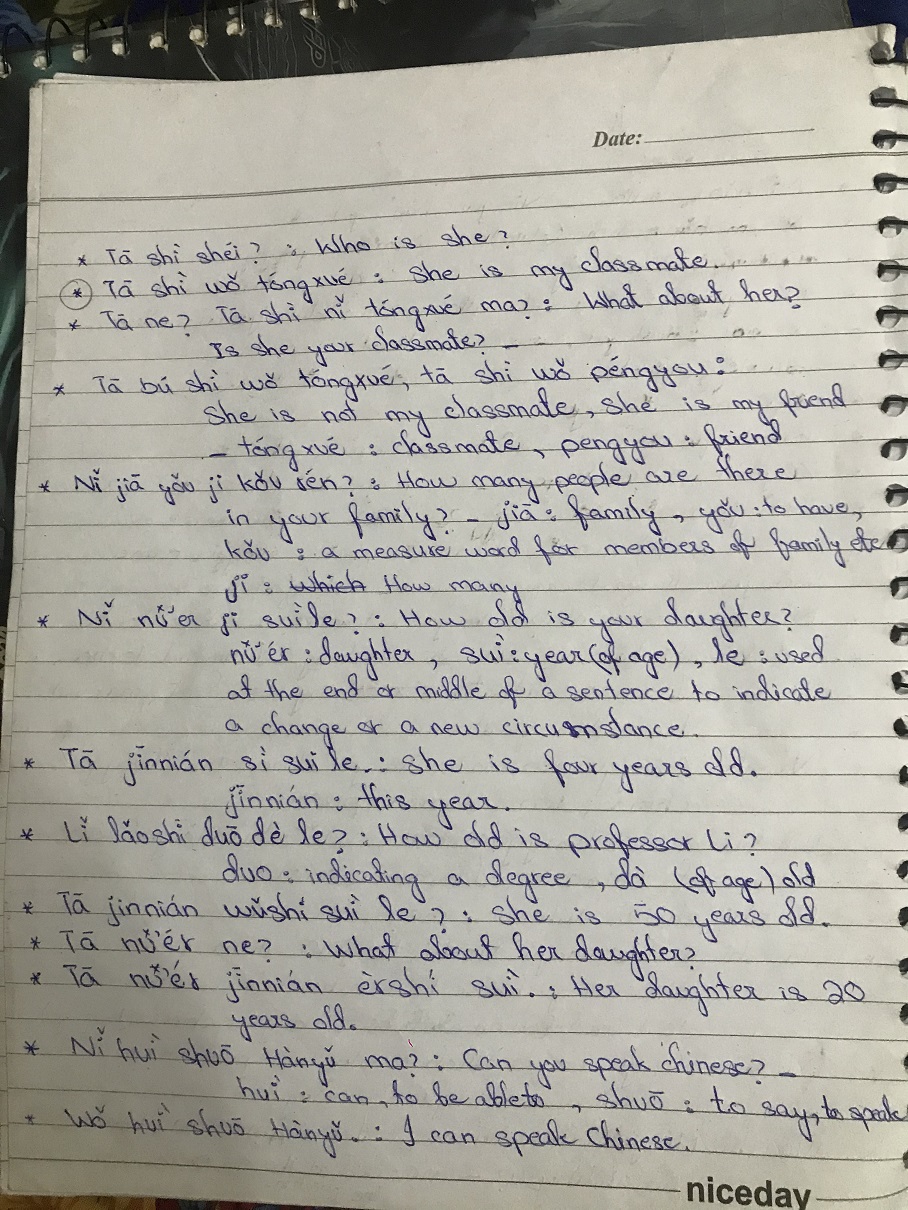 Date:
* Tā shì shéi? : Who is she?
* Tā shì wǒ tóngxué : She is my classmate.
* Tā ne? Tā shì nǐ tóngxué ma? : What about her?
Is she your classmate? –
* Tā bú shì wǒ tóngxué, tā shì wǒ péngyou :
She is not my classmate, she is my friend
– tóngxué : classmate, pengyou : friend
* Nǐ jiā yǒu jǐ kǒu rén? : How many people are there
in your family? – jiā : family, yǒu : to have,
kǒu : a measure word for members of family etc
jǐ : ~~which~~ How many
* Nǐ nǚ'er jǐ suì le? : How old is your daughter?
nǚ'ér : daughter, suì : year (of age), le : used
at the end or middle of a sentence to indicate
a change or a new circumstance.
* Tā jīnnián sì suì le. : She is four years old.
jīnnián : this year.
* Lǐ lǎoshi duō dà le? : How old is professor Li?
duo : indicating a degree, dà (of age) old
* Tā jinnián wǔshí suì le? : She is 50 years old.
* Tā nǚ'ér ne? : What about her daughter?
* Tā nǚ'ér jīnnián èrshí suì. : Her daughter is 20
years old.
* Nǐ huì shuō Hànyǔ ma? : Can you speak chinese? –
huì : can, to be able to, shuō : to say, to speak
* Wǒ huì shuō Hànyǔ. : I can speak Chinese.
niceday